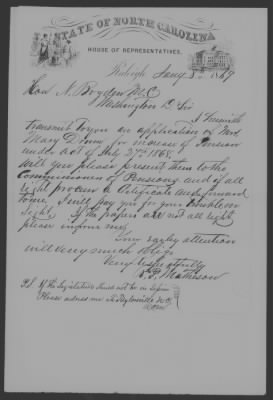 STATE OF NORTH CAROLINA
HOUSE OF REPRESENTATIVES.
Raleigh Jany 1869
Hon N. Boyden M.C.
Washington D.C. Sir
I herewith
transmit to you an application of Mrs
Mary for increase of Pension
under Act of July 27th 1868
Will you please present them to the
Commissioner of Pensions and if all
right procure a Certificate and forward
to me. I will pay you for your trouble on
sight. If the papers are not all right
please inform me
Your early attention
will very much oblige
Very respectfully
Matheson
P.S. If the Legislature should not be in Session
Please address me Taylorsville N.C.